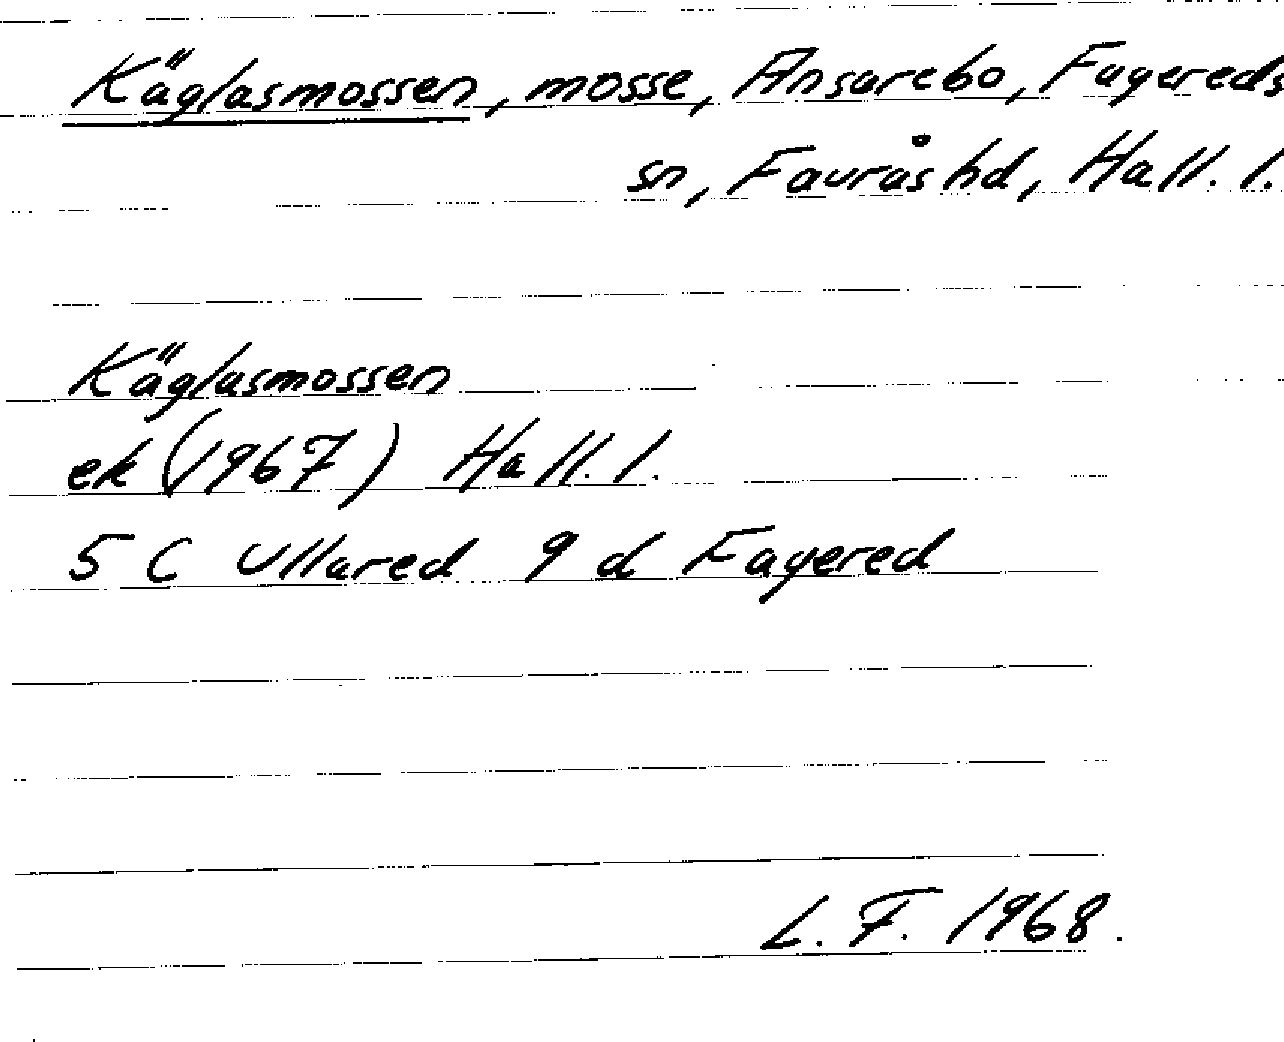 Käglasmossen, mosse, Ansarebo, Fagereds
sn, Faurås hd, Hall. l.
Käglasmossen
ek (1967) Hall. l.
5 C Ullared 9 d Fagered
L. F. 1968.